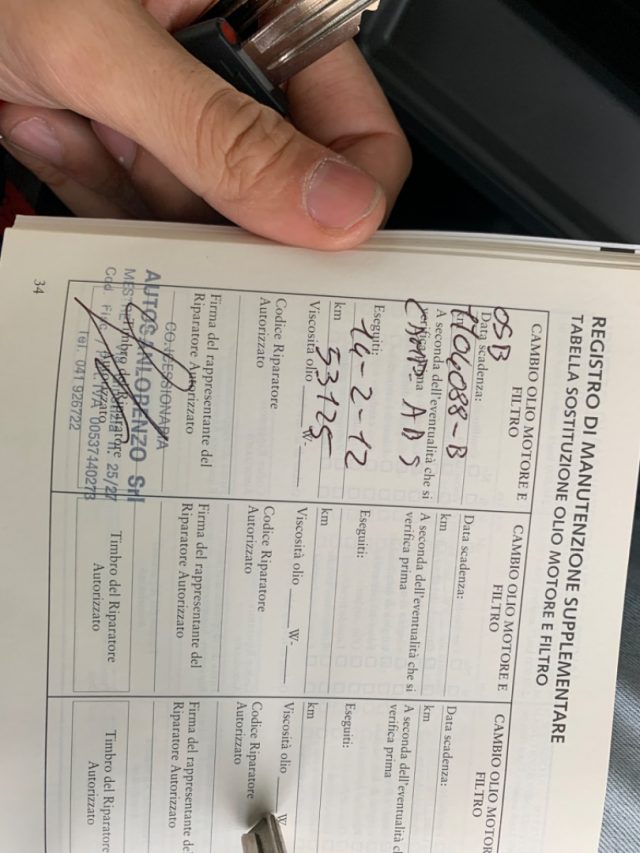 REGISTRO DI MANUTENZIONE SUPPLEMENTARE
TABELLA SOSTITUZIONE OLIO MOTORE E FILTRO
CAMBIO OLIO MOTORE E
FILTRO
OSB
Data scadenza:
04088-B
A seconda dell'eventualità che si
verifica prima
ADS
Eseguiti:
14-2-12
km 53125
Viscosità olio W-
Codice Riparatore
Autorizzato
Firma del rappresentante del
Riparatore Autorizzato
CONCESSIONARIA
AUTOSANLORENZO Srl
Timbro del Riparatore
Autorizzato
25/27
P. IVA 00537440273
Tel. 041 926722
CAMBIO OLIO MOTORE E
FILTRO
Data scadenza:
km
A seconda dell'eventualità che si
verifica prima
Eseguiti:
km
Viscosità olio W-
Codice Riparatore
Autorizzato
Firma del rappresentante del
Riparatore Autorizzato
Timbro del Riparatore
Autorizzato
CAMBIO OLIO MOTOR
FILTR
Data scadenza:
km
A seconda dell'eventualità c
verifica prima
Eseguiti:
km
Viscosità olio W
Codice Riparatore
Autorizzato
Firma del rappresentante de
Riparatore Autorizzato
Timbro del Riparatore
Autorizzato
34